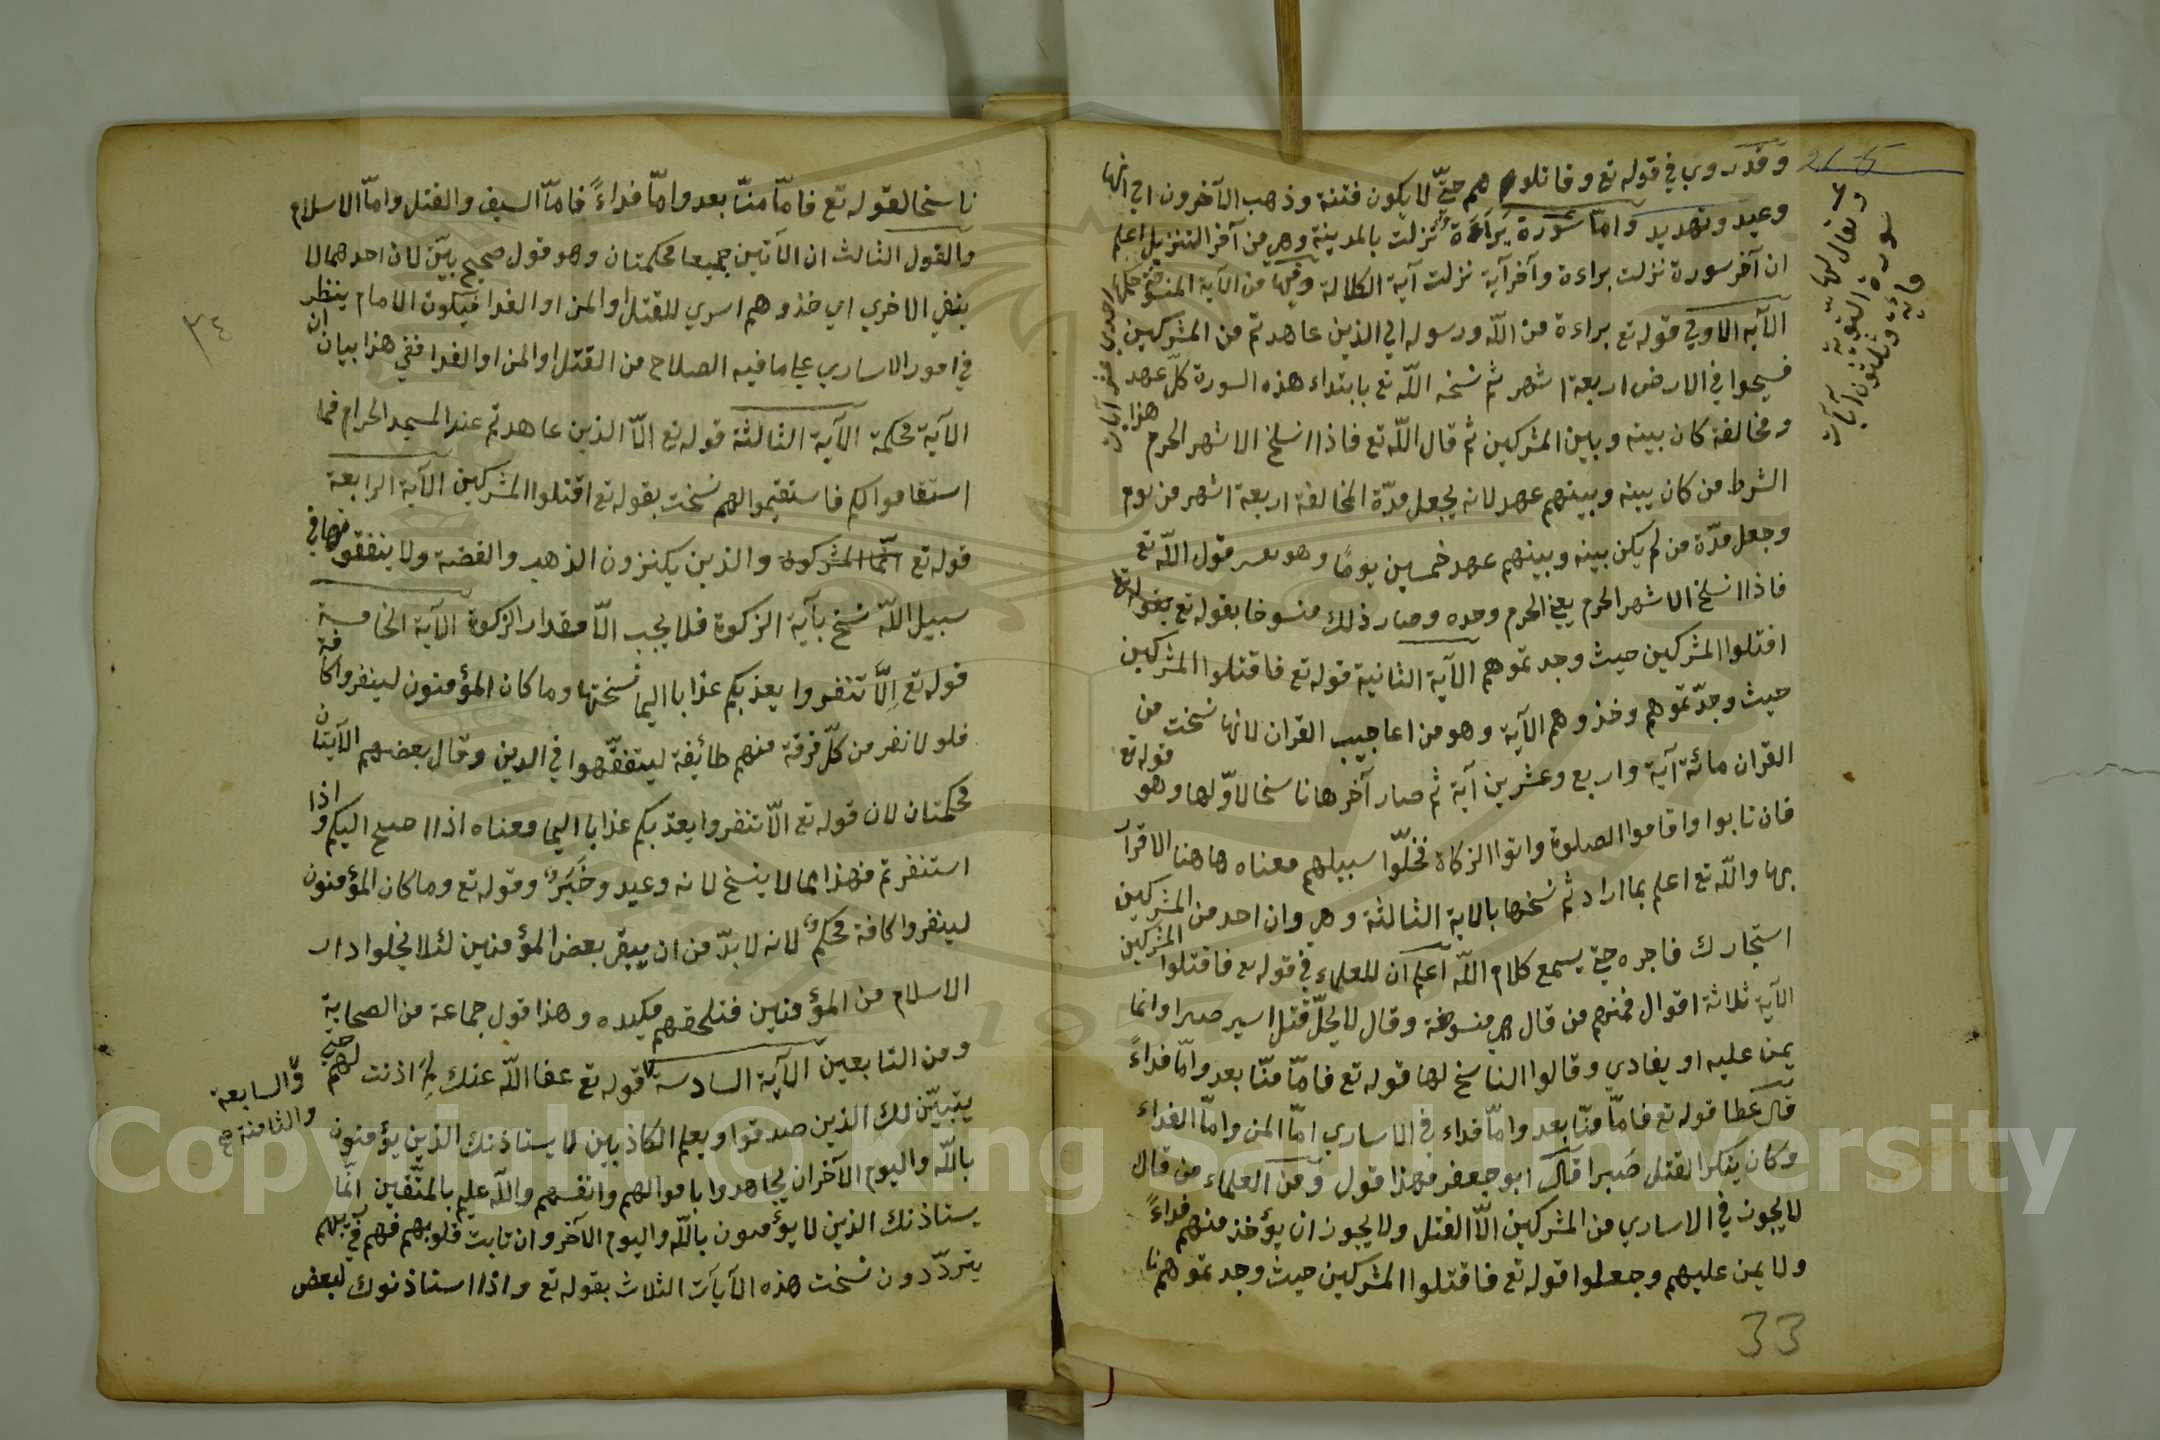 وقد روي في قوله تع وقاتلوهم حتّى لا يكون فتنة وذهب الآخرون الي انها
وعيد وتهديد وامّا سورة براءة نزلت بالمدينة وهي من آخر التنزيل اعلم
ان آخر سورة نزلت براءة وآخر آية نزلت آية الكلالة وفيها من الآية المنسوخة حكمها احدي عشر آيات
الآية الاولي قوله تع براءة من اللّه ورسوله الي الذين عاهدتم من المشركين
فسيحوا في الارض اربعة اشهر ثم نسخه اللّه تع بابتداء هذه السورة كلّ عهد
ومخالفة كان بينه وبين المشركين ثم قال اللّه تع فاذا انسلخ الاشهر الحرم هذا
الشرط من كان بينه وبينهم عهد لانه يجعل مدّة المخالفة اربعة اشهر من يوم
وجعل مدّة من لم يكن بينه وبينهم عهد خمسين يومًا وهو قول اللّه تع
فاذا انسلخ الاشهر الحرم يعني الحرم وحده وصار ذلك منسوخا بقوله تع
اقتلوا المشركين حيث وجدتموهم الآية الثانية قوله تع فاقتلوا المشركين
حيث وجدّتموهم وخذوهم الآية وهو من اعاجيب القران لانها نسخت من
القران مائة آية واربع وعشرين آية ثم صار آخرها ناسخا لاوّلها وهو قوله تع
فان تابوا واقاموا الصلوة واتوا الزكاة فخلّوا سبيلهم معناه هاهنا الاقرار
بها واللّه تع اعلم بما اراد ثم نسخها بالاية الثالثة وهي وان احد من المشركين
استجارك فاجره حتي يسمع كلام اللّه اعلم ان للعلماء في قوله تع فاقتلوا المشركين
الآية ثلاثة اقوال فمنهم من قال هي منسوخة وقال لا يحلّ قتل اسير صبرا وانما
يمن عليه او يفادي وقالوا الناسخ لها قوله تع فامّا منّا بعد وامّا فداءً
قال عطا قوله تع فامّا منّا بعد وامّا فداء في الاساري امّا المن وامّا الفداء
وكان ينكر القتل صَبرا قال ابو جعفر فهذا قول ومن العلماء من قال
لا يجوز في الاساري من المشركين الّا القتل ولا يجوز ان يؤخذ منهم فداءً
ولا يمن عليهم وجعلوا قوله تع فاقتلوا المشركين حيث وجدتموهم نا
ويقال لها
سورة التوبة
مائة وثلثون آيات
33
ناسخا لقوله تع فامّا منّا بعد وامّا فداءً فامّا السيف والقتل وامّا الاسلام
والقول الثالث ان الآتين جميعا محكمتان وهو قول صحيح بيّن لان احدهما لا
ينفي الاخري اي خذوهم اسري للقتل او المن او الفدا فيكون الامام ينظر
في امور الاساري علي ما فيه الصلاح من القتل او المن او الفدا ففي هذا بيان ان
الآية محكمة الآية الثالثة قوله تع الّا الذين عاهدتم عند المسجد الحرام فما
استقاموا لكم فاستقيموا لهم نسخت بقوله تع اقتلوا المشركين الآية الرابعة
قوله تع انّما المشركون والذين يكنزون الذهب والفضة ولا ينفقونها في
سبيل اللّه نسخ بآية الزكوة فلا يجب الّا مقدار الزكوة الآية الخامسة
قوله تع اِلّا تنفروا يعذبكم عذابا اليما نسختها وما كان المؤمنون لينفروا كافة
فلولا نفر من كلّ فرقة منهم طائفة ليتفقّهوا في الدين وقال بعضهم الآيتان
محكمتان لان قوله تع الّا تنفروا يعذّبكم عذابا اليما معناه اذا احتيج اليكم واذا
استنفرتم فهذا مما لا ينسخ لانه وعيد وخَبَر وقوله تع وما كان المؤمنون
لينفروا كافة محكم لانه لا بدّ من ان يبقي بعض المؤمنين لئلا يخلوا دار
الاسلام من المؤمنين فتلحقهم مكيده وهذا قول جماعة من الصحابة
ومن التابعين الآية السادسة قوله تع عفا اللّه عنك لِمَ اذنت لهم حتي
والسابعة
والثامنة صح
يتبيّن لك الذين صدقوا ويعلم الكاذبين لا يستاذنك الذين يؤمنون
باللّه واليوم الآخر ان يجاهدوا باموالهم وانفسهم واللّه عليم بالمتّقين انّما
يستاذنك الذين لا يؤمنون باللّه واليوم الآخر وارتابت قلوبهم فهم في ريبهم
يتردّدون نسخت هذه الآيات الثلاث بقوله تع واذا استاذنوك لبعض
٣٤
Copyright © King Saud University